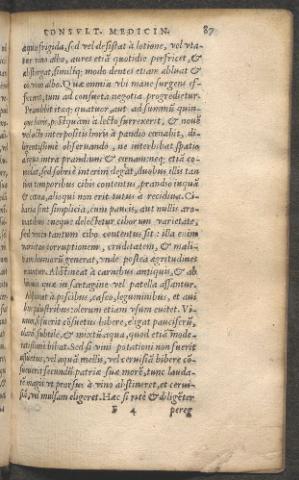 CONSVLT. MEDICIN. 87
aqua frigida, sed vel desistat à lotione, vel vta-
tur vino albo, aures etiã quotidie perfricet, &
abstergat, similiq; modo dentes etiam abluat &
vino albo. Quæ omnia vbi mane surgens ef-
fecerit, tum ad consueta negotia progredietur.
Prandebit itaq; quatuor, aut ad summũ quin-
que horis, postquàm è lecto surrexerit, & nouẽ
vel octo interpositis horis à prandio cœnabit, di-
ligentissimè obseruando, ne interbibat spatio
aliquo intra prandium & cœnam: neq; etiã co-
medat, sed sobriè interim degat, duobus illis tan
tùm temporibus cibis contentus, prandio inquã
& cœna, alioqui non erit tutus à recidiua. Ci-
baria sint simplicia, eum paucis, aut nullis aro-
matibus: neque delectetur cibor um varietate,
sed vnico tantùm cibo contentus sit: illa enim
varietas corruptionem, cruditatem, & mali-
tiam humorũ generat, vnde posteà ægritudines
Abstineat à carnibus antiquis, & ab
quæ in sartagine vel patella assantur.
Abstineat à piscibus, caseo, leguminibus, et aui
bus palustribus: olerum etiam vsum euitet. Vi-
num, si fuerit cõsuetus bibere, exigat pauciferũ,
subtile, & mixtũ aqua, quod etiã mode-
bibat. Sed si vini potationi non fuerit
assuetus, vel aquã mellis, vel ceruisiã bibere cõ-
sueuerit secundũ patriæ suæ morẽ, tunc lauda-
magis vt prorsus à vino abstineret, et cerui-
siã, vel mulsam eligeret. Hæc si ritè & diligẽter
F 4 pereg